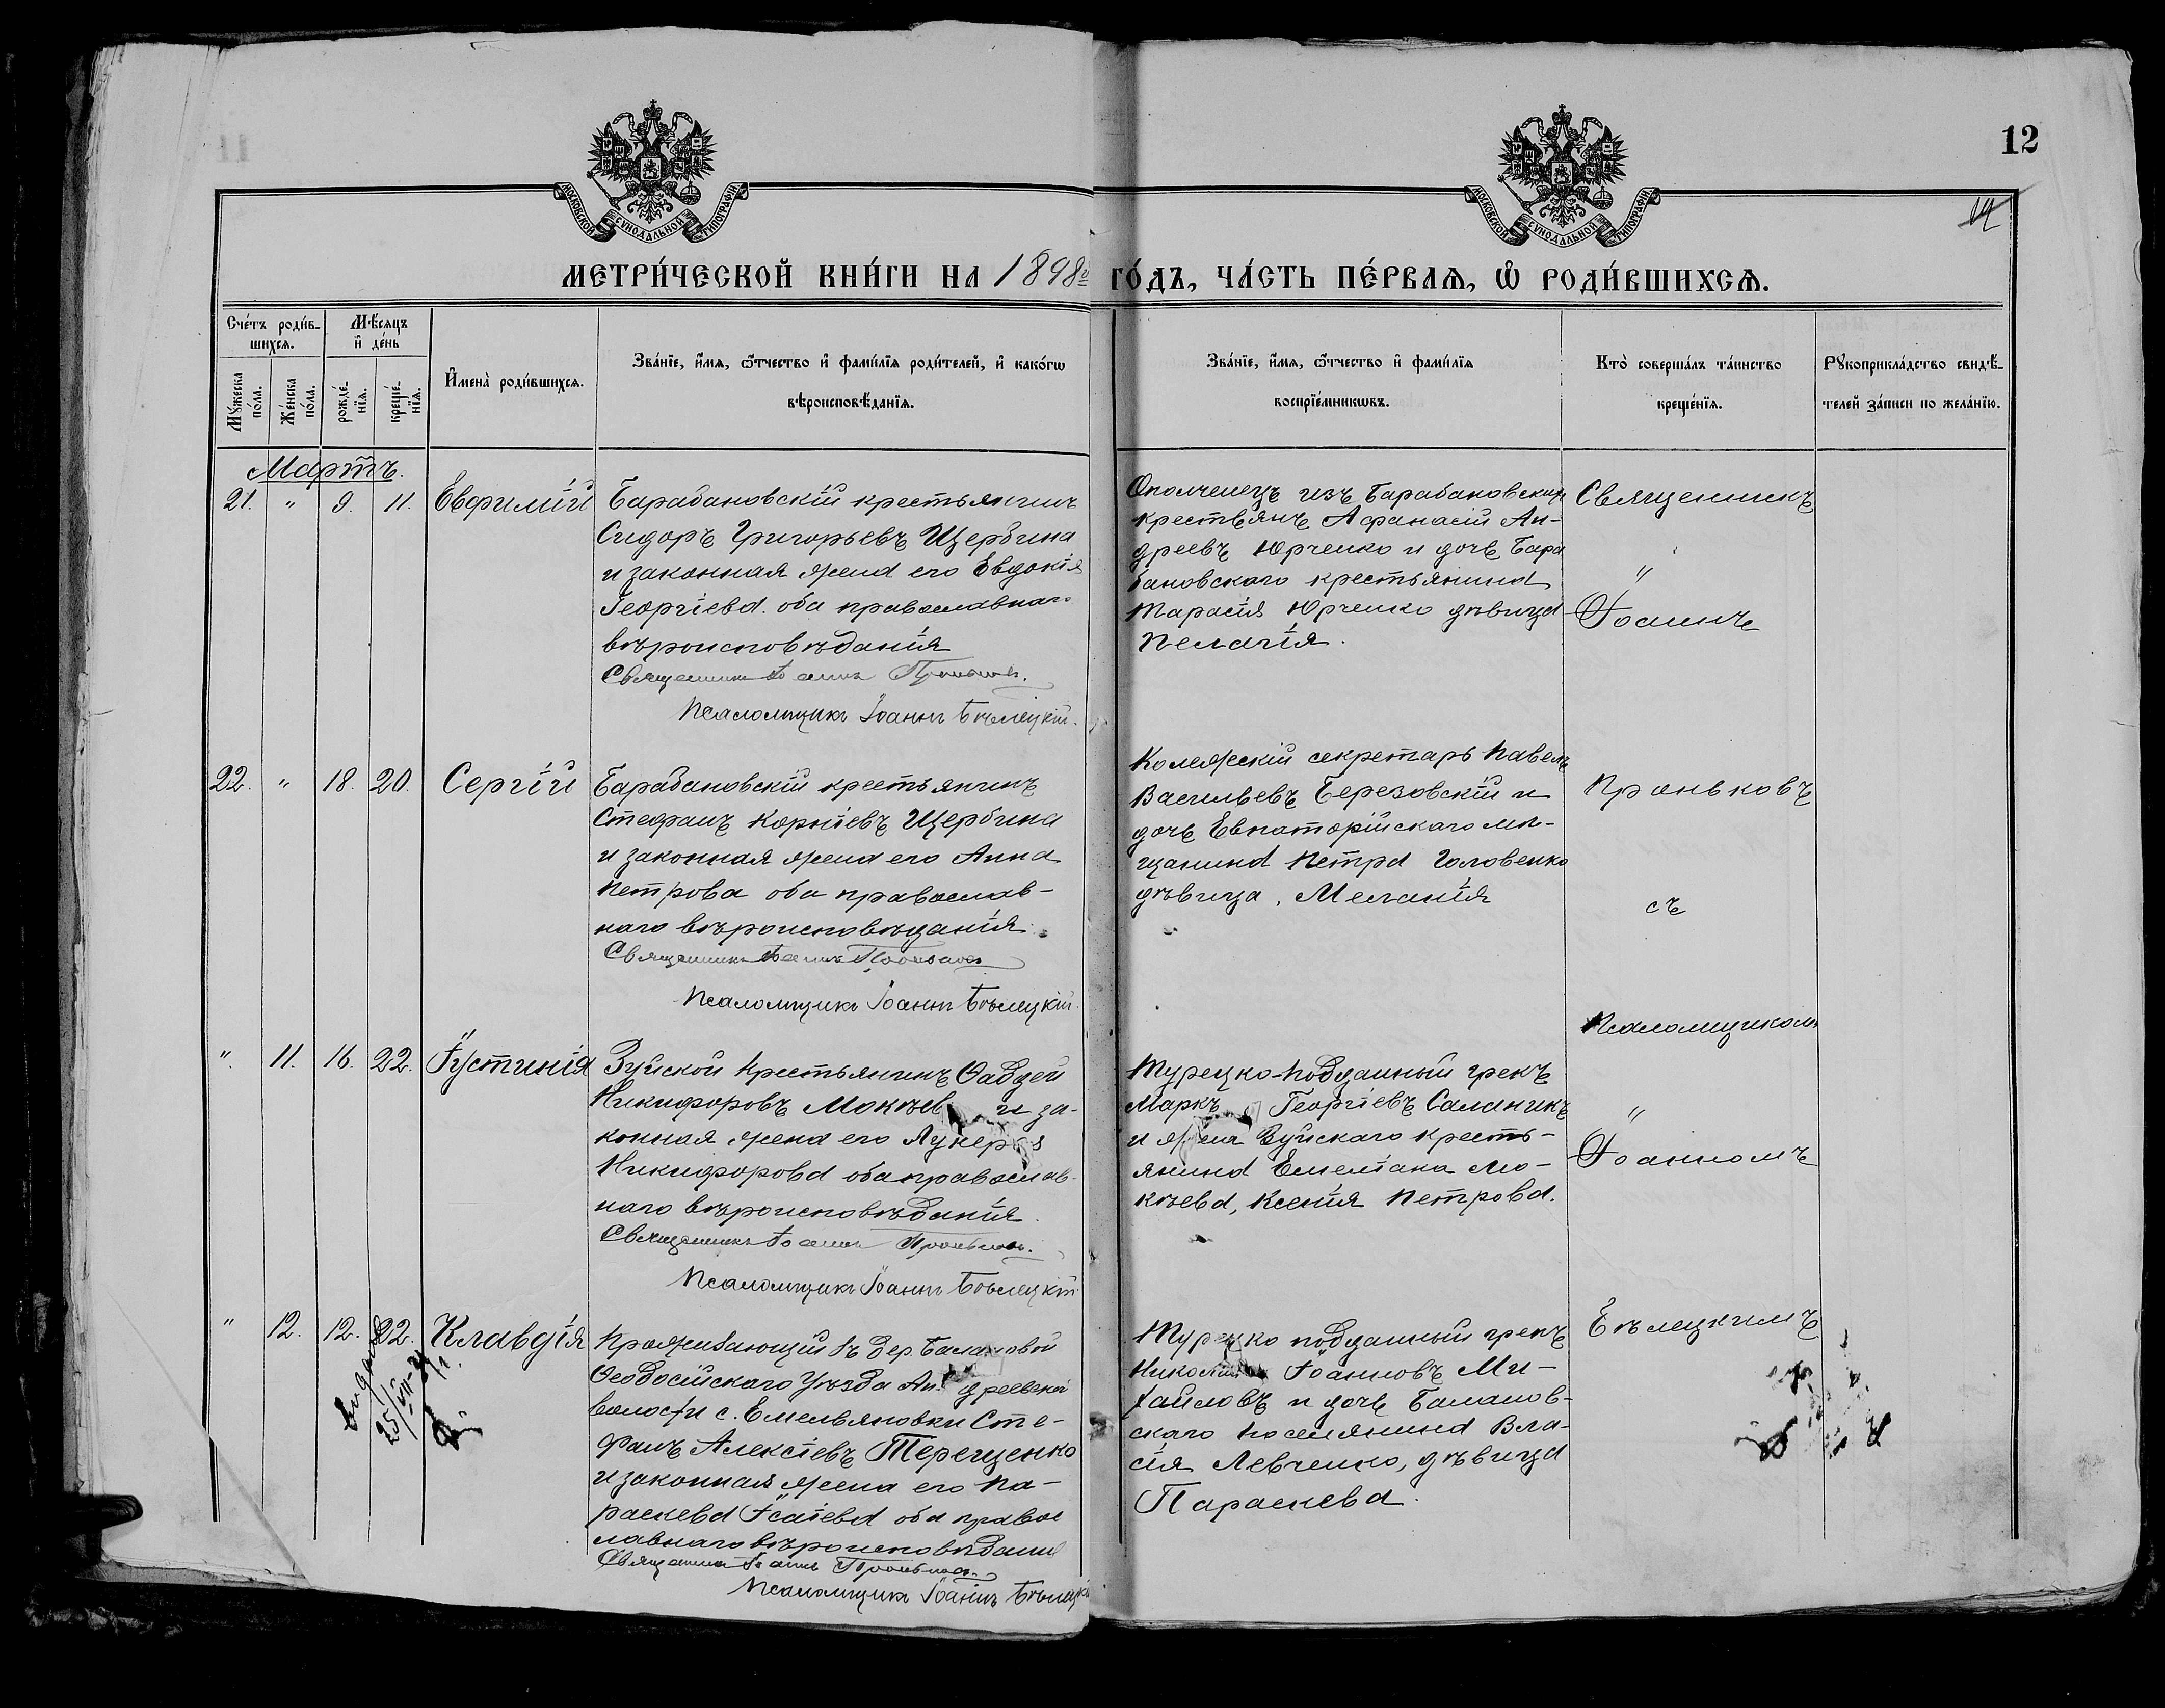 12
МОСКОВСКОЙ СѴНОДАЛЬНОЙ ТИПОГРАФІИ
МОСКОВСКОЙ СѴНОДАЛЬНОЙ ТИПОГРАФІИ
МЕТРИ́ЧЕСКОЙ КНИ́ГИ НА 1898й ГО́ДЪ, ЧА́СТЬ ПЕ́РВАѦ, Ѡ҆ РОДИ́ВШИХСѦ.
Сче́тъ роди́в-
шихсѧ.
Мꙋ́жеска
по́ла.
Же́нска
по́ла.
Мѣ́сѧцъ
и҆ де́нь
рожде́-
нїѧ.
креще́-
нїѧ.
И҆мена̀ роди́вшихсѧ.
Зва́нїе, и҆́мѧ, ѻ҆́тчество и҆ фами́лїѧ роди́телей, и҆ како́гѡ
вѣроисповѣ́данїѧ.
Зва́нїе, и҆́мѧ, ѻ҆́тчество и҆ фами́лїѧ
воспрїе́мникѡвъ.
Кто̀ соверша́лъ та́инство
креще́нїѧ.
Рꙋкоприкла́дство свидѣ́-
телей за́писи по жела́нїю.
Мартъ.
21. " 9. 11. Евфимій
Барабановскій крестьянинъ
Сидоръ Григорьевъ Щербина
и законная жена его Евдокія
Георгіева. оба православнаго
вѣроисповѣданія
Священникъ Іоаннъ Проньковъ.
Псаломщикъ Іоаннъ Бѣлецкій.
Ополченецъ изъ Барабановскихъ
крестьянъ Афанасій Ан-
дреевъ Юрченко и дочь Бара
бановскаго крестьянина
Тарасія Юрченко дѣвица
Пелагія.
22. " 18. 20. Сергій
Барабановскій крестьянинъ
Стефанъ Корніевъ Щербина
и законная жена его Анна
Петрова оба православ-
наго вѣроисповѣданія.
Священникъ Іоаннъ Проньковъ
Псаломщикъ Іоаннъ Бѣлецкій.
Колежскій секретарь Павелъ
Васильевъ Березовскій и
дочь Евпаторійскаго мѣ-
щанина Петра Головенко
дѣвица, Меланія
". 11. 16. 22. Іустинія
Зуйской крестьянинъ Ѳаддей
Никифоровъ Мокѣев и за-
конная жена его Лукерія
Никифорова оба православ-
наго вѣроисповѣданія.
Священникъ Іоаннъ Проньковъ.
Псаломщикъ Іоаннъ Бѣлецкій
Турецко-подданный грекъ
Маркъ Георгіевъ Саланикъ
и жена Зуйскаго кресть-
янина Емеліана Мо-
кѣева, Ксенія Петрова.
" 12. 12. 22. Клавдія
Проживающій въ дер. Балановой
Ѳеодосійскаго Уѣзда Андреевской
волости с. Емельяновки Сте-
фанъ Алексіевъ Терещенко
и законная жена его Па-
раскева Ісаіева оба право
славнаго вѣроисповѣданія
Священникъ Іоаннъ Проньковъ.
Псаломщикъ Іоаннъ Бѣлецкій
Турецко подданный грекъ
Николай Іоанновъ Ми-
хайловъ и дочь Баланов-
скаго поселянина Вла-
сія Левченко, дѣвица
Параскева.
Священникъ
"
Іоаннъ
Проньковъ
съ
Псаломщикомъ
"
Іоанномъ
Бѣлецкимъ